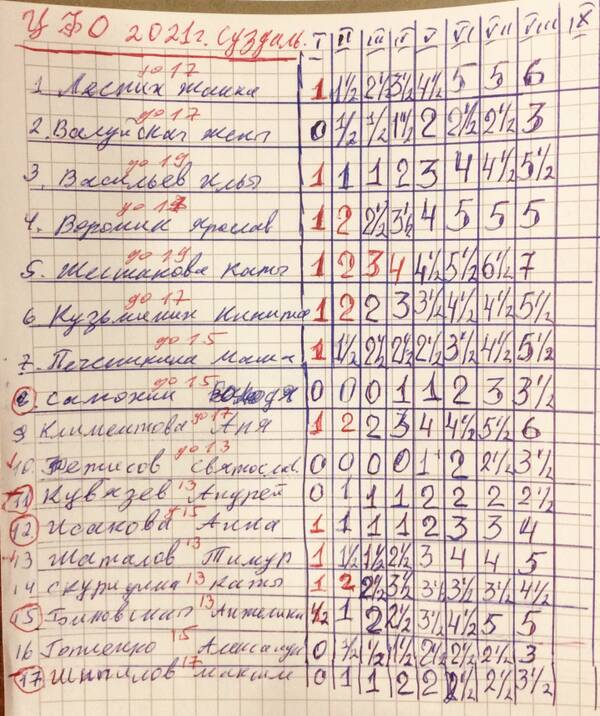 ЦФО 2021г. Суздаль. I II III IV V VI VII VIII IX
до 17
1. Лесник Жанна 1 1½ 2½ 3½ 4½ 5 5 6
до 17
2. Валуйская Женя 0 ½ ½ 1½ 2 2½ 2½ 3
до 19
3. Васильев Илья 1 1 1 2 3 4 4½ 5½
4. Воронин Ярослав 1 2 2½ 3½ 4 5 5 5
до 19
5. Шестакова Катя 1 2 3 4 4½ 5½ 6½ 7
до 17
6 Кузьминых Никита 1 2 2 3 3½ 4½ 4½ 5½
до 15
7. Печенкина Маша 1 1½ 2½ 2½ 2½ 3½ 4½ 5½
до 15
8. Самохин 0 0 0 1 1 2 3 3½
9 Климентова до 17 Аня 1 2 2 3 4 4½ 5½ 6
до 13
10. Святослав 0 0 0 0 1 2 2½ 3½
11 Кувязев 13 Андрей 0 1 1 1 2 2 2 2½
12 Исакова 15 Анна 1 1 1 1 2 3 3 4
13 Шаталов 13 Тимур 1 1½ 1½ 2½ 3 4 4 5
14 Скуридина 13 Катя 1 2 2½ 3½ 3½ 3½ 3½ 4½
15 13 Анжелика ½ 1 2 2½ 3½ 4½ 5 5
16 Гоженко 15 Александр 0 ½ ½ 1½ 2½ 2½ 2½ 3
17 Шпилов 17 Максим 0 1 1 2 2 2½ 2½ 3½